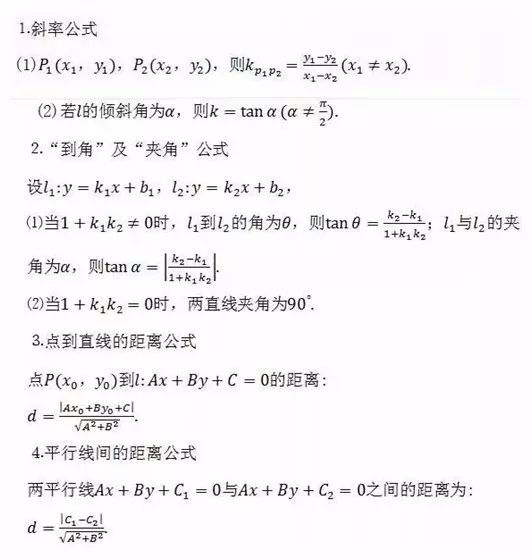 1.斜率公式
⑴P₁(x₁，y₁)，P₂(x₂，y₂)，则k_{p₁p₂}=\frac{y₁−y₂}{x₁−x₂}(x₁≠x₂).
⑵若l的倾斜角为α，则k=tan α(α≠\frac{π}{2}).
2.“到角”及“夹角”公式
设l₁:y=k₁x+b₁，l₂:y=k₂x+b₂，
⑴当1+k₁k₂≠0时，l₁到l₂的角为θ，则tan θ=\frac{k₂−k₁}{1+k₁k₂}；l₁与l₂的夹
角为α，则tan α=|\frac{k₂−k₁}{1+k₁k₂}|.
⑵当1+k₁k₂=0时，两直线夹角为90°.
3.点到直线的距离公式
点P(x₀，y₀)到l:Ax+By+C=0的距离：
d=\frac{|Ax₀+By₀+C|}{\sqrt{A²+B²}}.
4.平行线间的距离公式
两平行线Ax+By+C₁=0与Ax+By+C₂=0之间的距离为：
d=\frac{|C₁−C₂|}{\sqrt{A²+B²}}